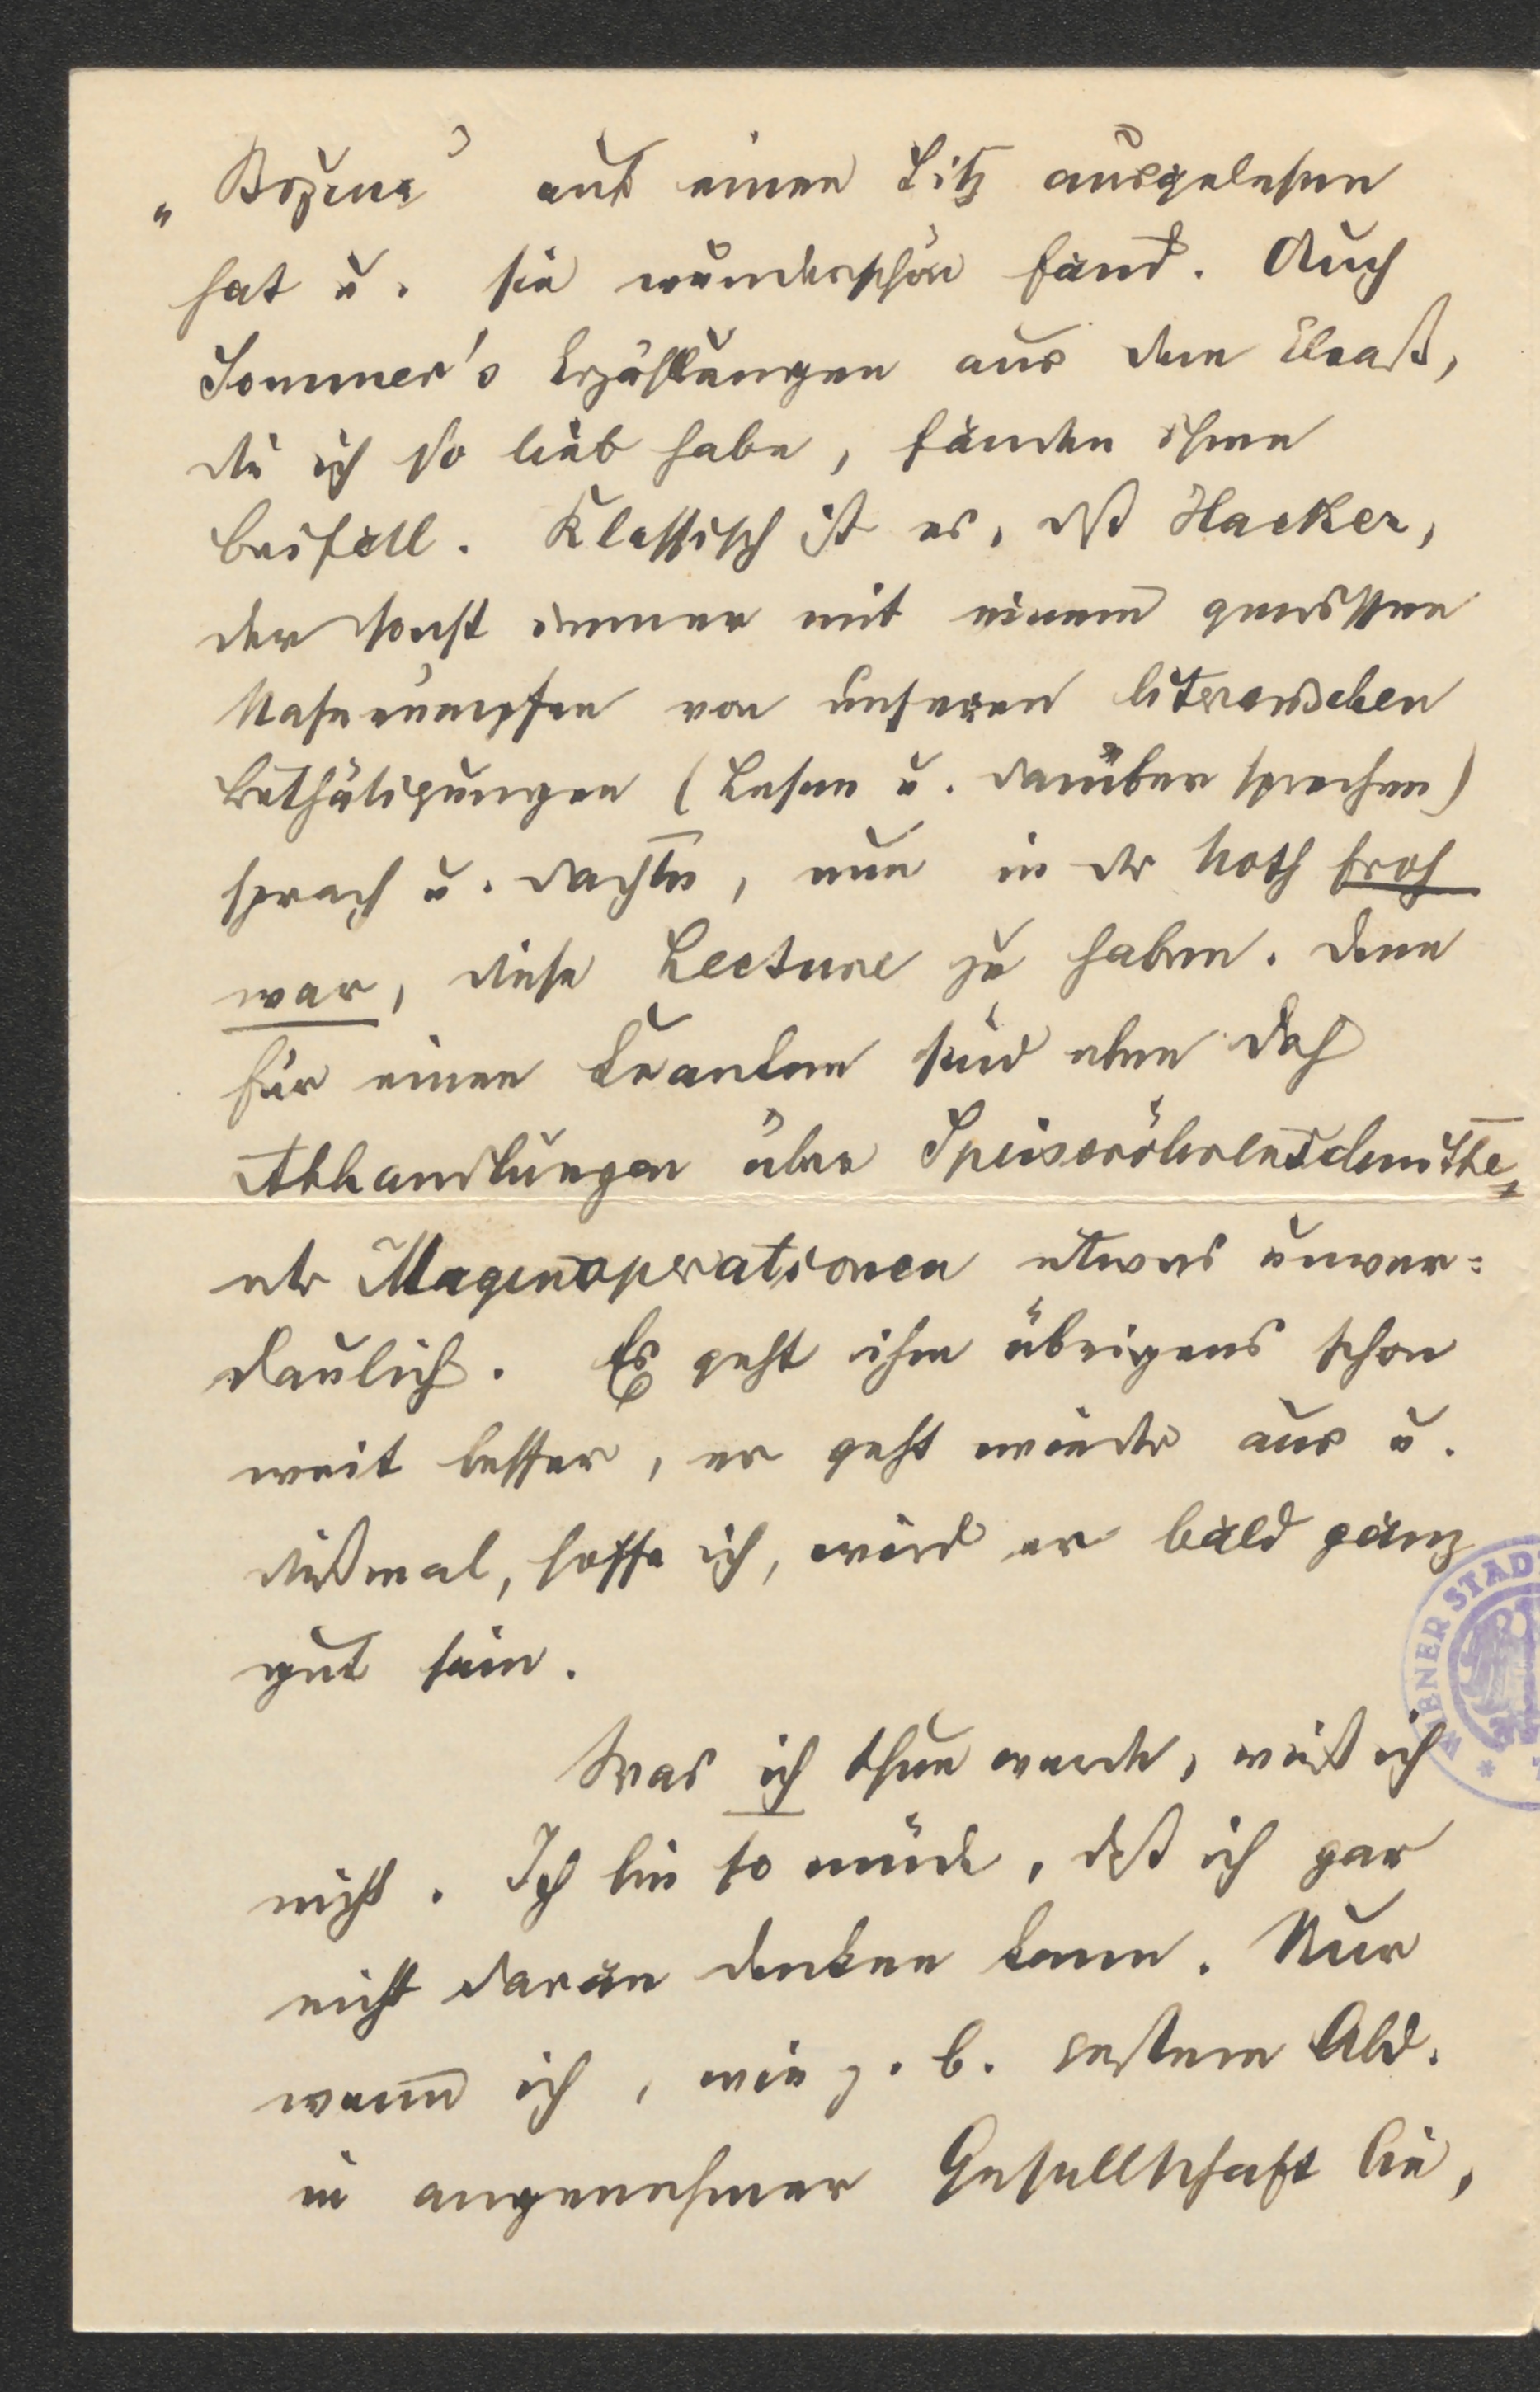 „Božena" auf einen Sitz ausgelesen
hat u. sie wunderschön fand. Auch
Sommer's Erzählungen aus dem Elsaß,
die ich so lieb habe, fanden ihren
Beifall. Klassisch ist es, dß Hacker,
der sonst immer mit einem gewissen
Naserümpfen von unseren literarischen
Bethätigungen (Lesen u. darüber sprechen)
sprach u. dachte, nun in der Noth froh
war, diese Lecture zu haben. Denn
für einen Kranken sind eben doch
Abhandlungen über Speiseröhrenschnitte,
od. Magenoperationen etwas unver=
daulich. Es geht ihm übrigens schon
weit besser, er geht wieder aus u.
dießmal, hoffe ich, wird er bald ganz
gut sein.
Was ich thun werde, weiß ich
nicht. Ich bin so müde, dß ich gar
nicht daran denken kann. Nur
wenn ich, wie z. B. gestern Abd.
in angenehmer Gesellschaft bin,
WIENER STAD